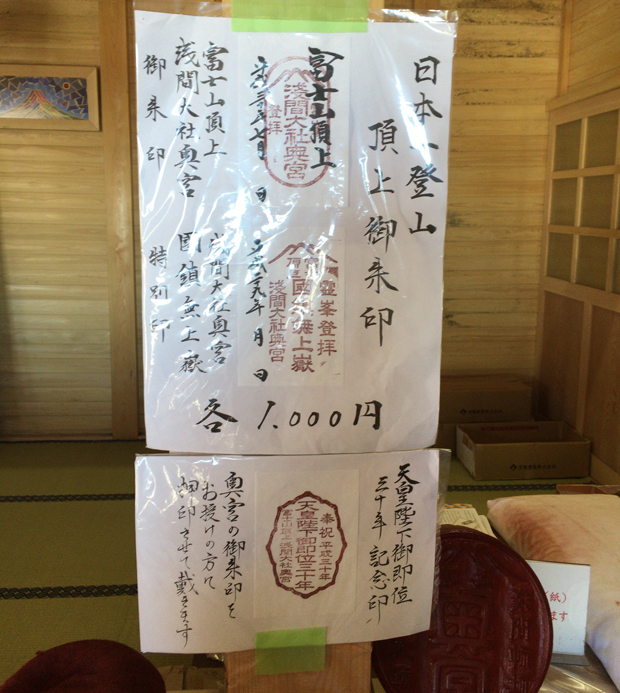 日本一登山
頂上御朱印
富士山頂上
浅間大社奥宮
登拝
日
富士山頂上
浅間大社奥宮
御朱印
霊峯登拝
國鎮無上嶽
浅間大社奥宮
年 月 日
浅間大社奥宮
國鎮無上嶽
特別印
各 1,000円
天皇陛下御即位
三十年 記念印
奉祝 平成三十年
天皇陛下御即位三十年
富士山頂上浅間大社奥宮
奥宮の御朱印を
お授けの方に
押印させて戴きます
(紙)
ます